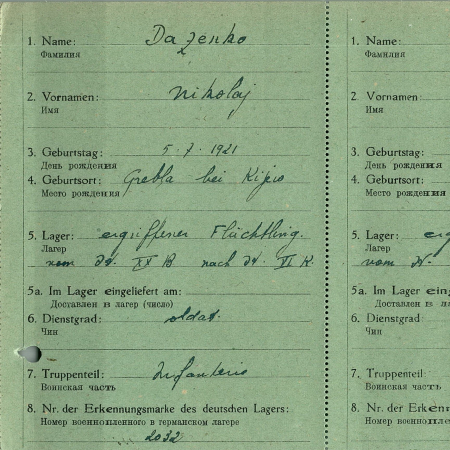 1. Name: Dazenko
Фамилия
2. Vornamen: Nikolaj
Имя
3. Geburtstag: 5.7.1921
День рождения
4. Geburtsort: Grebla bei Kijew
Место рождения
5. Lager: ergriffener Flüchtling.
Лагер
vom St. IV B nach St. VI K.
5a. Im Lager eingeliefert am:
Доставлен в лагер (число)
6. Dienstgrad: Soldat.
Чин
7. Truppenteil: Infanterie
Воинская часть
8. Nr. der Erkennungsmarke des deutschen Lagers:
Номер военнопленного в германском лагере
2032
1. Name:
Фамилия
2. Vornamen:
Имя
3. Geburtstag:
День рождения
4. Geburtsort:
Место рождения
5. Lager:
Лагер
vom St.
5a. Im Lager
Доставлен в
6. Dienstgrad
Чин
7. Truppenteil:
Воинская часть
8. Nr. der
Номер